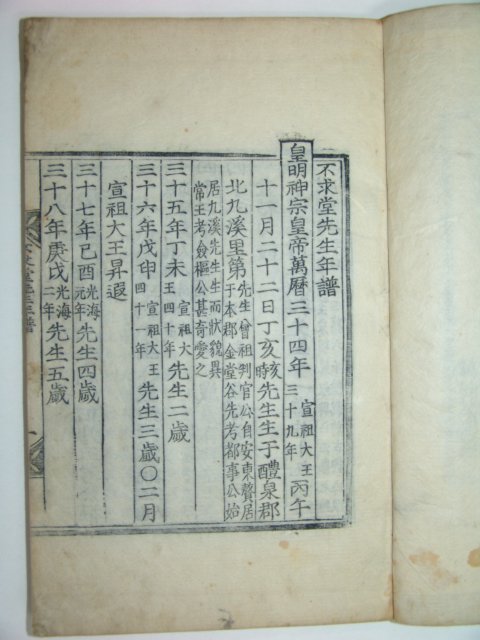 不求堂先生年譜
皇明神宗皇帝萬曆三十四年宣祖大王三十九年丙午
十一月二十二日丁亥亥時先生生于醴泉郡
北九溪里第先生曾祖判官公自安東贅居于本郡金堂谷先考都事公始
居九溪先生生而狀貌異常王考僉樞公甚奇愛之
三十五年丁未宣祖大王四十年先生二歲
三十六年戊申宣祖大王四十一年先生三歲〇二月
宣祖大王昇遐
三十七年己酉光海元年先生四歲
三十八年庚戌光海二年先生五歲